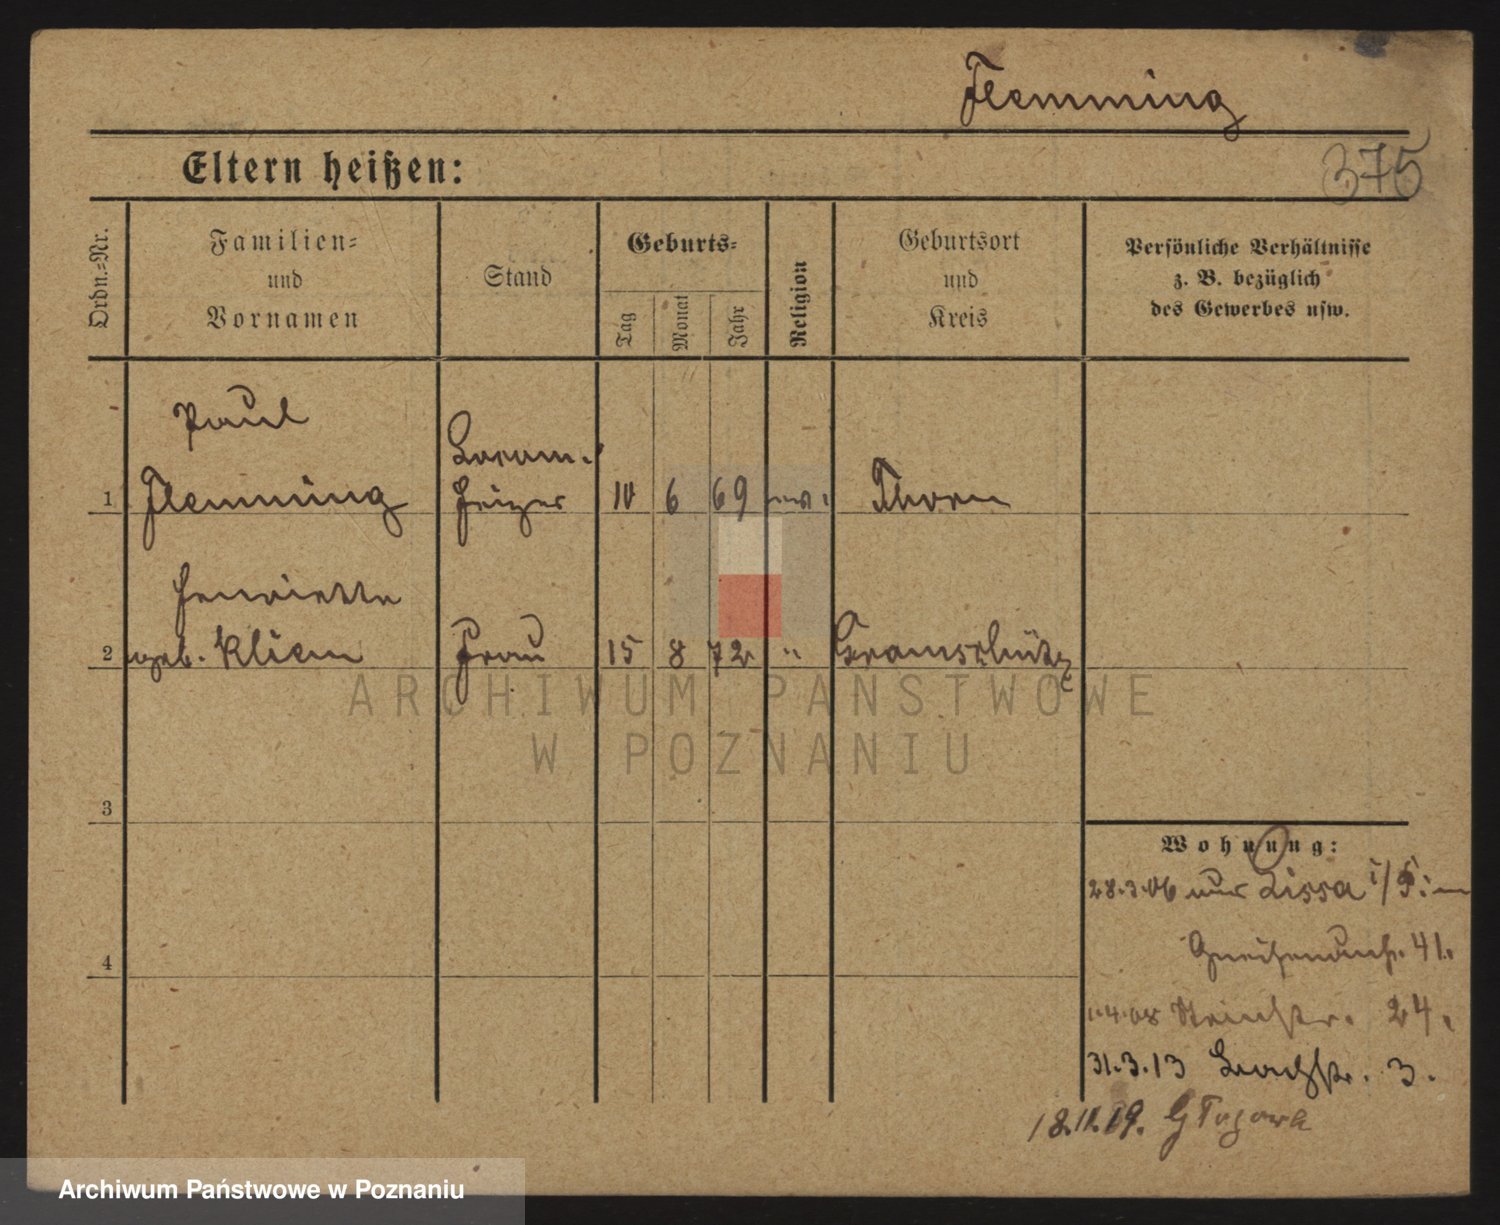 Flemming
375
Eltern heißen:
Ordn.=Nr.
Familien=
und
Vornamen
Stand
Geburts=
Tag
Monat
Jahr
Religion
Geburtsort
und
Kreis
Persönliche Verhältnisse
z. B. bezüglich
des Gewerbes usw.
1
Paul
Flemming
Locom.
Heizer
10 6 69
Thorn
2
Henriette
geb. Kliem
Frau
15 8 72 "
Gramschütz
3
4
Wohnung:
28.3.06 Lissa i/P.
Gneisenaustr. 41.
1.4.08 24.
31.3.13 3.
18.11.19.
ARCHIWUM PAŃSTWOWE
W POZNANIU
Archiwum Państwowe w Poznaniu